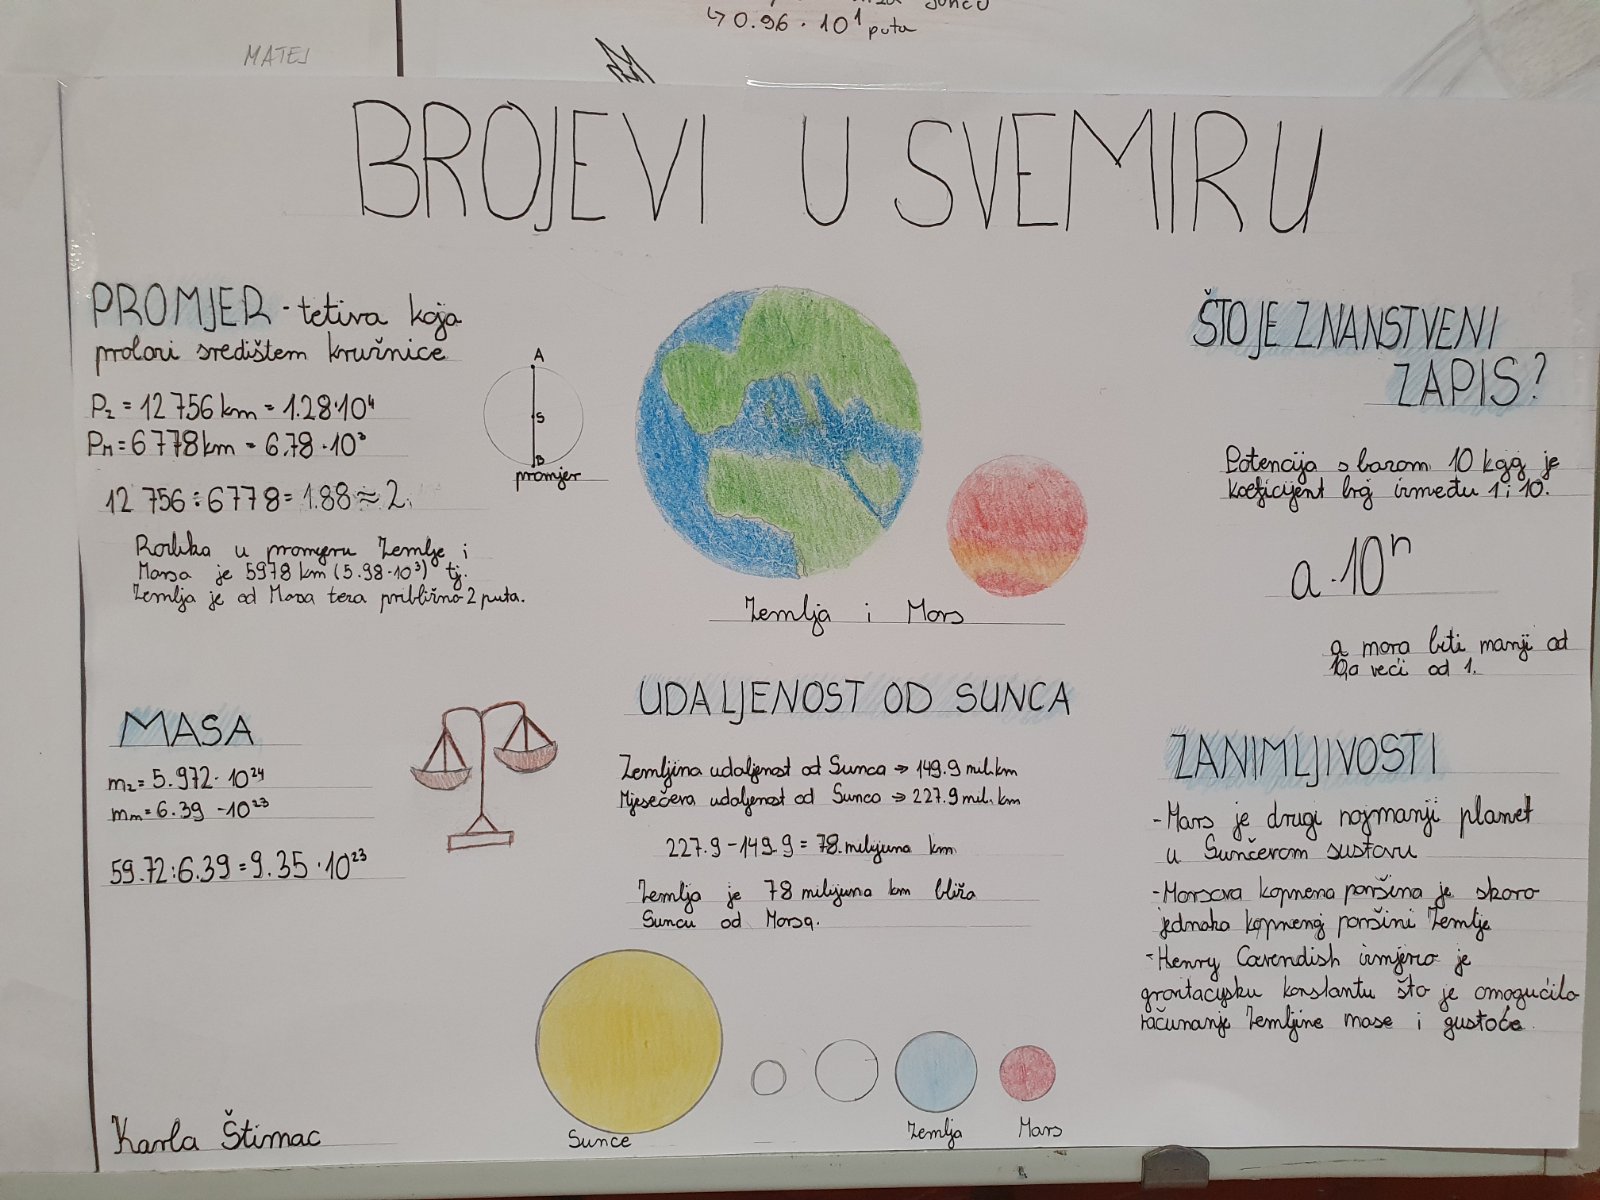 Suncu
↳ 0.96 · 10¹ puta
MATEJ
BROJEVI U SVEMIRU
PROMJER - tetiva koja
prolazi središtem kružnice
Pz = 12 756 km = 1.28·10⁴
PM = 6 778 km = 6.78 · 10³
12 756 : 6778 = 1.88 ≈ 2
Razlika u promjeru Zemlje i
Marsa je 5978 km (5.98·10³) tj.
Zemlja je od Marsa teža približno 2 puta.
A
S
B
promjer
Zemlja i Mars
ŠTO JE ZNANSTVENI
ZAPIS?
Potencija s bazom 10 kojoj je
koeficijent broj između 1 i 10.
a · 10ⁿ
a mora biti manji od
10, a veći od 1.
MASA
mz = 5.972 · 10²⁴
mm = 6.39 · 10²³
59.72 : 6.39 = 9.35 · 10²³
UDALJENOST OD SUNCA
Zemljina udaljenost od Sunca → 149.9 mil. km
Mjesečeva udaljenost od Sunca → 227.9 mil. km
227.9 - 149.9 = 78 milijuna km
Zemlja je 78 milijuna km bliža
Suncu od Marsa.
ZANIMLJIVOSTI
- Mars je drugi najmanji planet
u Sunčevom sustavu
- Marsova kopnena površina je skoro
jednaka kopnenoj površini Zemlje
- Henry Cavendish izmjerio je
gravitacijsku konstantu što je omogućilo
računanje Zemljine mase i gustoće.
Sunce
Zemlja
Mars
Karla Štimac